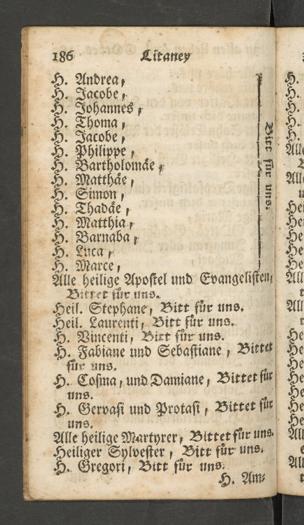 186 Litaney
H. Andrea,
H. Jacobe,
H. Johannes,
H. Thoma,
H. Jacobe,
H. Philippe,
H. Bartholomäe,
H. Matthäe,
H. Simon,
H. Thadäe,
H. Matthia,
H. Barnaba,
H. Luca,
H. Marce,
Bitt für uns.
Alle heilige Apostel und Evangelisten,
Bittet für uns.
Heil. Stephane, Bitt für uns.
Heil. Laurenti, Bitt für uns.
H. Vincenti, Bitt für uns.
H. Fabiane und Sebastiane, Bittet
für uns.
H. Cosma, und Damiane, Bittet für
uns.
H. Gervasi und Protasi, Bittet für
uns.
Alle heilige Martyrer, Bittet für uns.
Heiliger Sylvester, Bitt für uns.
H. Gregori, Bitt für uns.
H. Am-